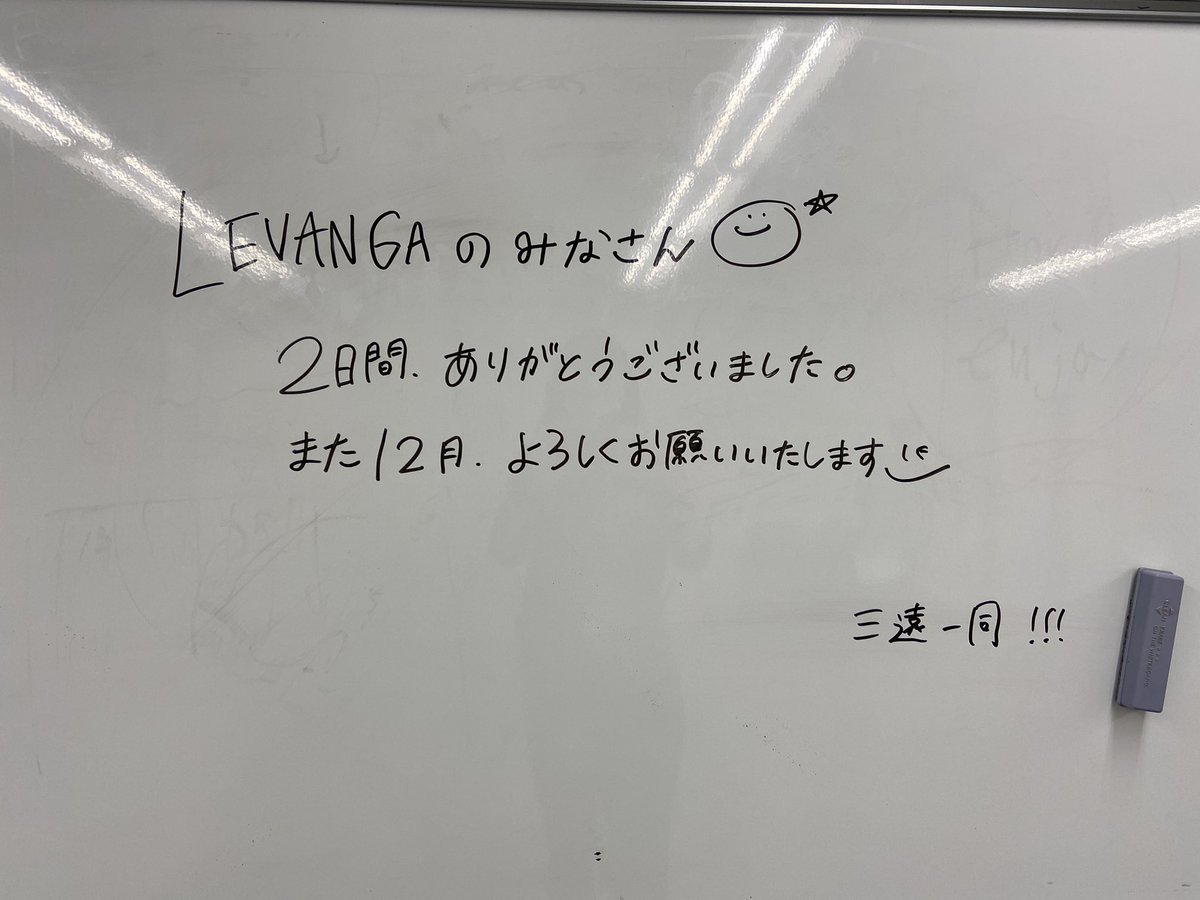 LEVANGAのみなさん
2日間、ありがとうございました。
また12月、よろしくお願いいたします
三遠一同!!!